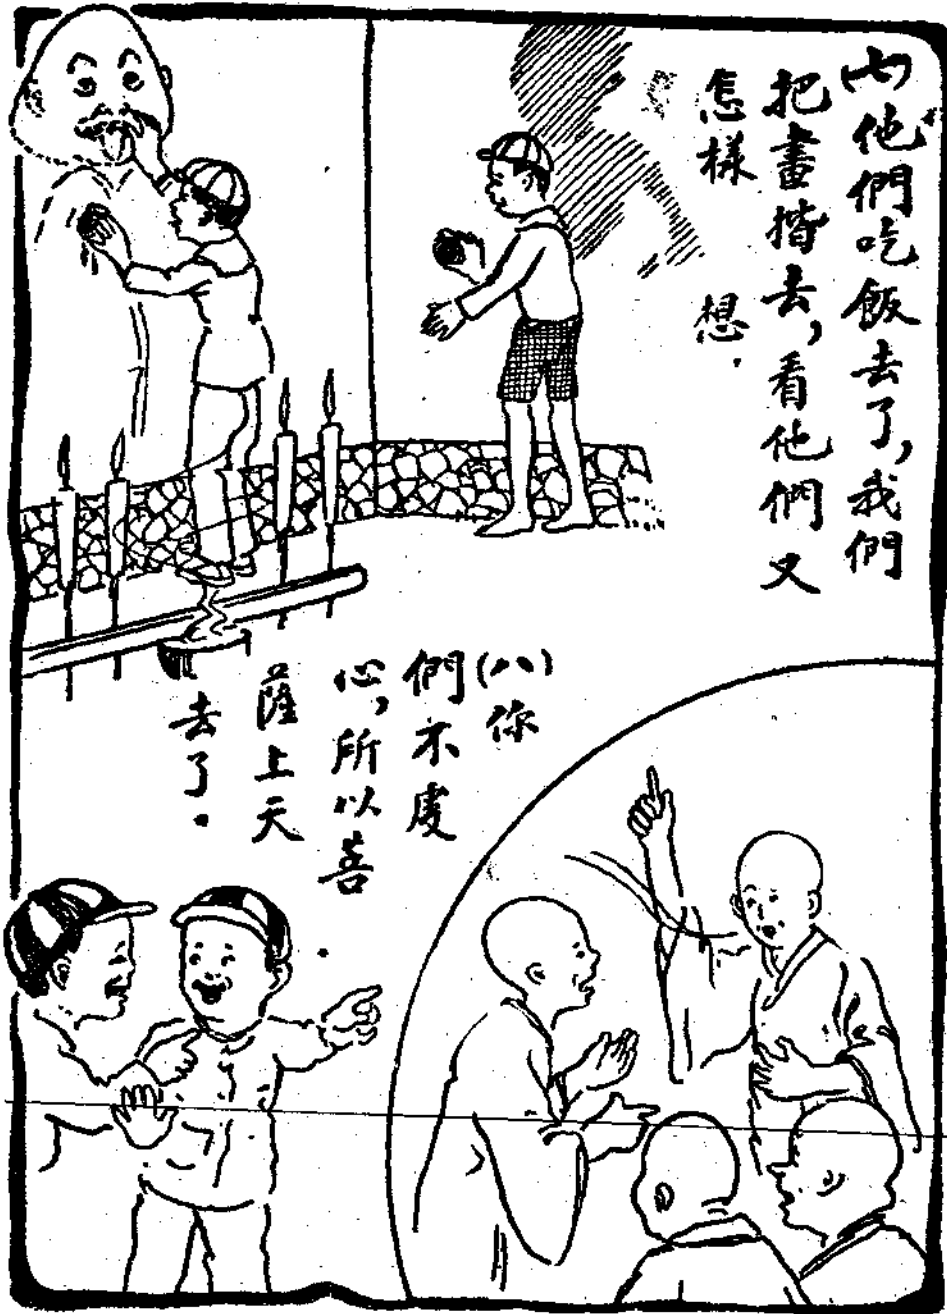 (七)他們吃飯去了,我們
把畫揩去,看他們又
怎樣想.
(八)你
們不虔
心,所以菩
薩上天
去了。